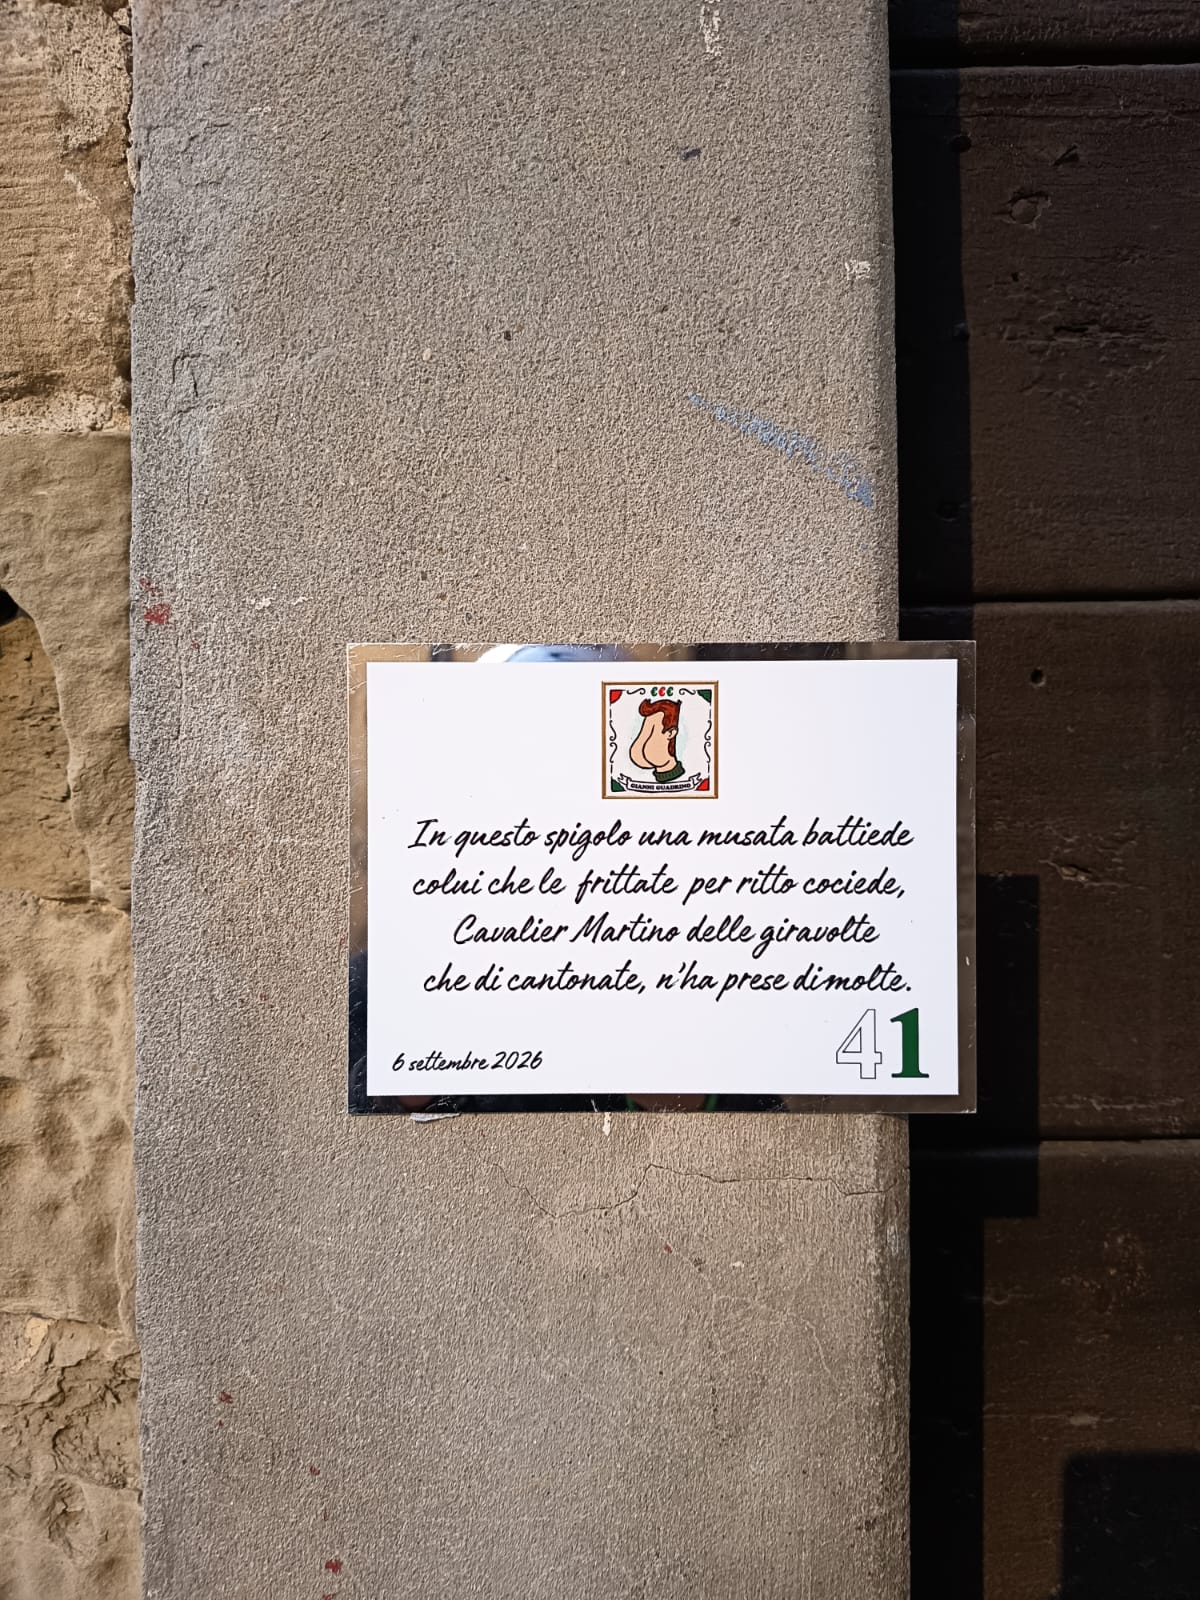 €€€
GIANNI GUADRINO
In questo spigolo una musata battiede
colui che le frittate per ritto cociede,
Cavalier Martino delle giravolte
che di cantonate, n'ha prese dimolte.
41
6 settembre 2026